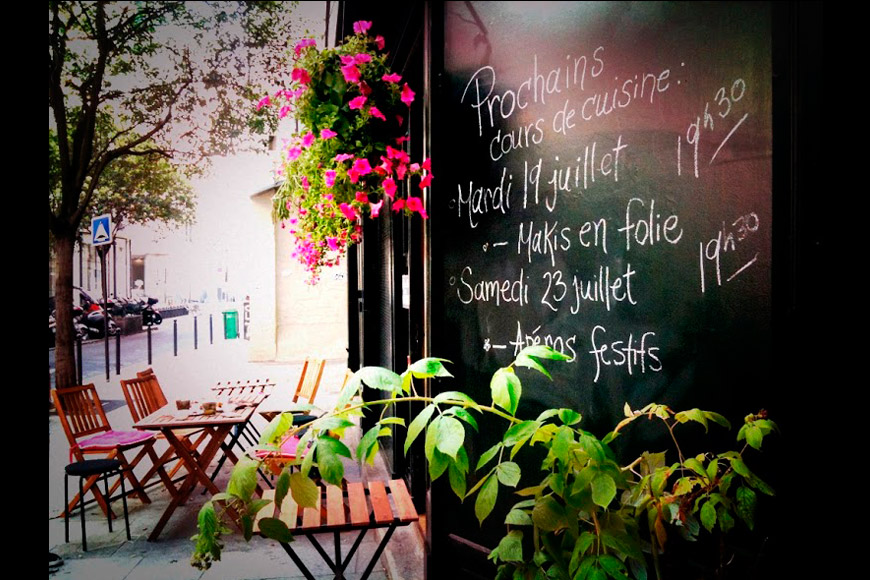 Prochains
cours de cuisine:
Mardi 19 juillet 19h30
- Makis en folie
Samedi 23 juillet 19h30
- Apéros festifs